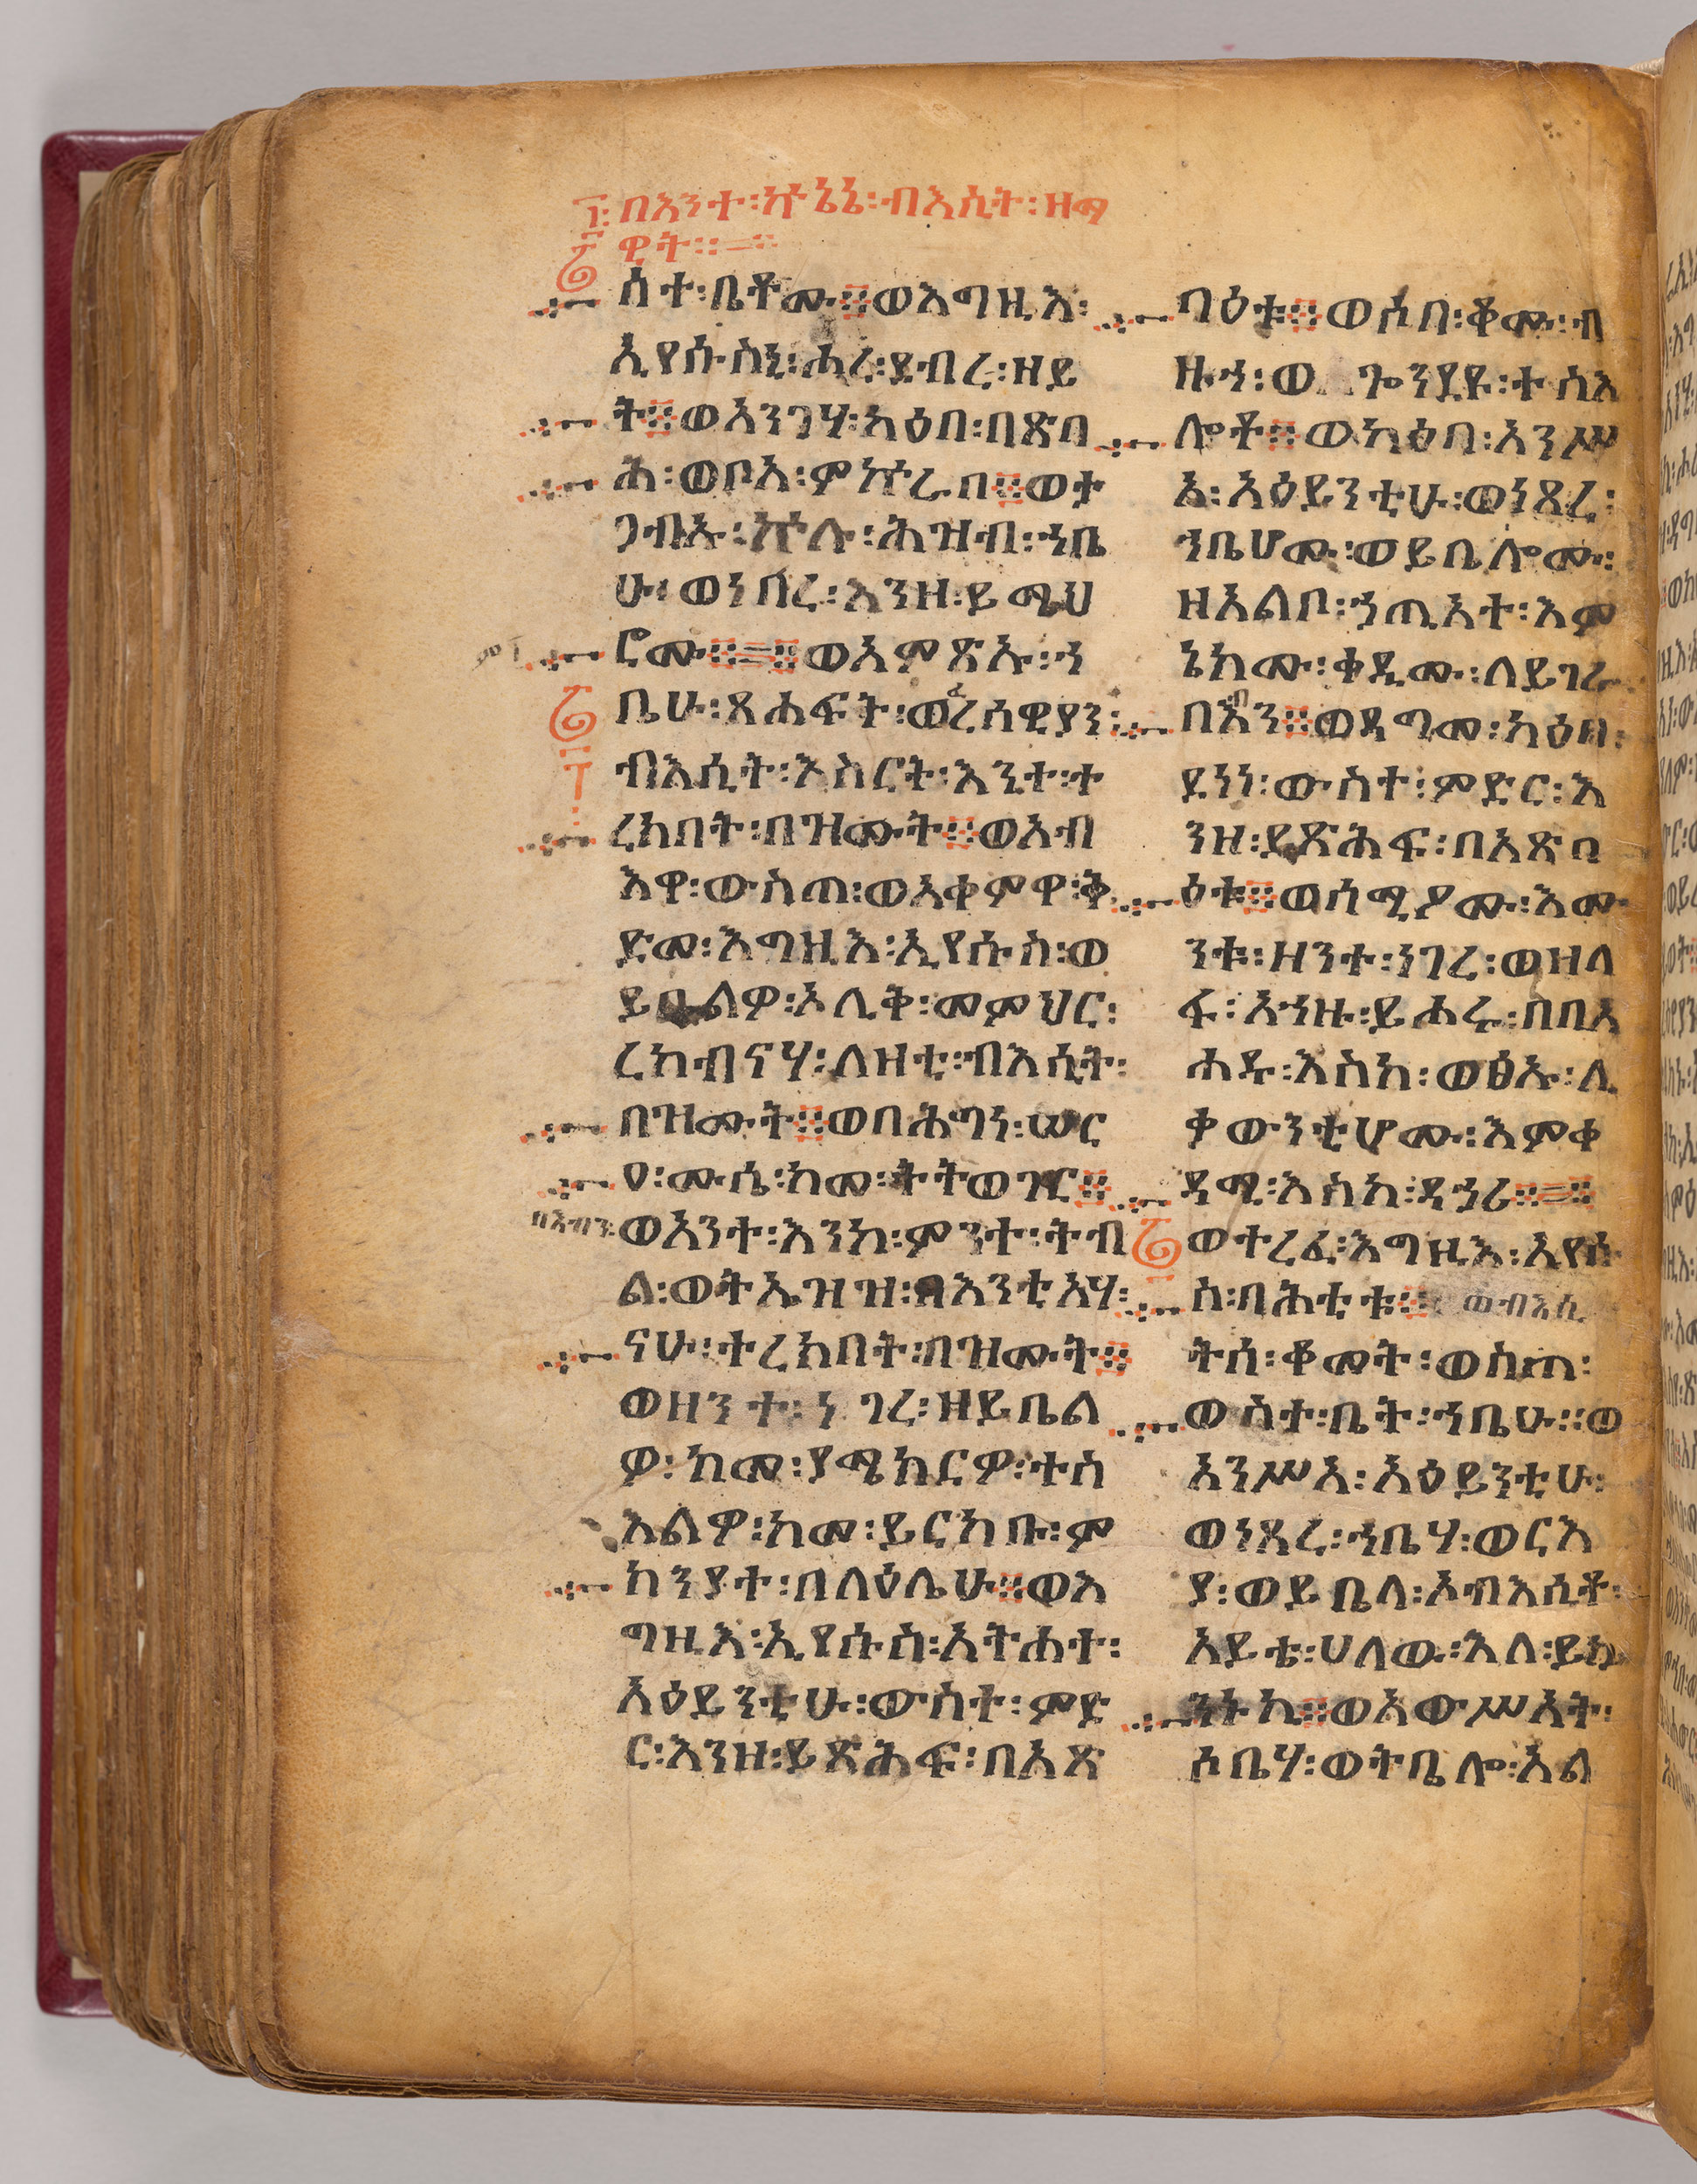 ፲፡ በእንተ፡ ኵነኔ፡ ብእሲት፡ ዘማ
ዊት።
ስተ፡ ቤቶሙ። ወእግዚእ፡
ኢየሱስኒ፡ ሖረ፡ ደብረ፡ ዘይ
ት። ወእንግሃ፡ ካዕበ፡ በጽባ
ሕ፡ ወቦአ፡ ምኵራበ። ወተ
ጋብኡ፡ ኵሉ፡ ሕዝብ፡ ኀቤ
ሁ፡ ወነበረ፡ እንዘ፡ ይሜህ
ሮሙ። ወአምጽኡ፡ ኀ
ቤሁ፡ ጸሐፍት፡ ወፈሪሰዊያን፡
ብእሲት፡ እስርት፡ እንተ፡ ተ
ረክበት፡ በዝሙት። ወአብ
እዋ፡ ውስጠ፡ ወአቀምዋ፡ ቅ
ድመ፡ እግዚእ፡ ኢየሱስ፡ ወ
ይቤልዎ፡ ኦሊቅ፡ መምህር፡
ረከብናሃ፡ ለዛቲ፡ ብእሲት፡
በዝሙት። ወበሕግነ፡ ሠር
ዐ፡ ሙሴ፡ ከመ፡ ትትወገር።
በእብን፡
ወአንተ፡ እንከ፡ ምንተ፡ ትብ
ል፡ ወትኤዝዝ፡ በእንቲአሃ፡
ናሁ፡ ተረክበት፡ በዝሙት።
ወዘንተ፡ ነገረ፡ ዘይቤል
ዎ፡ ከመ፡ ያሜክርዎ፡ ተስ
እልዎ፡ ከመ፡ ይርከቡ፡ ም
ክንያተ፡ በላዕሌሁ። ወእ
ግዚእ፡ ኢየሱስ፡ አትሐተ፡
አዕይንቲሁ፡ ውስተ፡ ምድ
ር፡ እንዘ፡ ይጽሕፍ፡ በአጽ
ባዕቱ። ወሶበ፡ ቆሙ፡ ብ
ዙኀ፡ ወጐንደዩ፡ ተስእ
ሎቶ። ወካዕበ፡ አንሥ
አ፡ አዕይንቲሁ፡ ወነጸረ፡
ኀቤሆሙ፡ ወይቤሎሙ፡
ዘአልቦ፡ ኀጢአተ፡ እም
ኔክሙ፡ ቀዲሙ፡ ለይገራ
በእብን። ወደግመ፡ ካዕበ፡
ደነነ፡ ውስተ፡ ምድር፡ እ
ንዘ፡ ይጽሕፍ፡ በአጽባ
ዕቱ። ወሰሚዖሙ፡ እሙ
ንቱ፡ ዘንተ፡ ነገረ፡ ወዘለ
ፋ፡ አኀዙ፡ ይሖሩ፡ በበአ
ሐዱ፡ እስከ፡ ወፅኡ፡ ሊ
ቃውንቲሆሙ፡ እምቀ
ዳሚ፡ እስከ፡ ዳኃሪ።
ወተረፈ፡ እግዚእ፡ ኢየሱ
ስ፡ ባሕቲቱ። ወብእሲ
ትሰ፡ ቆመት፡ ወስጠ፡
ውስተ፡ ቤት፡ ኀቤሁ። ወ
አንሥአ፡ አዕይንቲሁ፡
ወነጸረ፡ ኀቤሃ፡ ወርእ
ያ፡ ወይቤላ፡ ኦብእሲቶ፡
አይቴ፡ ሀለዉ፡ እለ፡ ይኴ
ንኑኪ። ወአውሥአት፡
ሶቤሃ፡ ወትቤሎ፡ አል